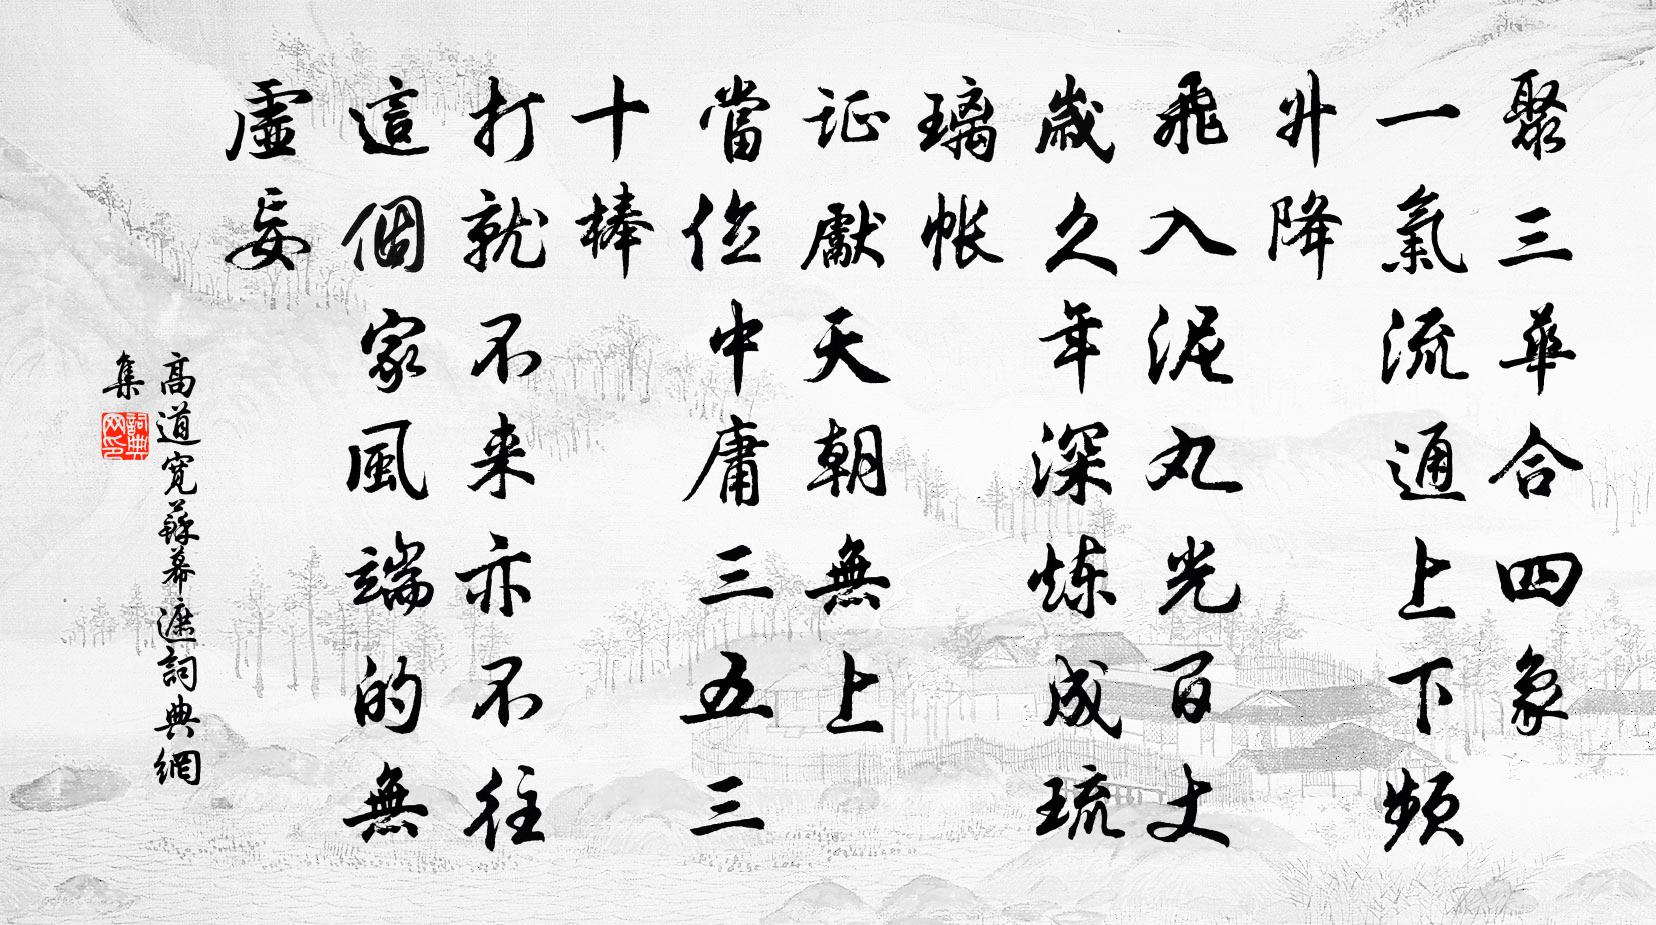 聚三華合四象
一氣流通上下頻
升降
飛入泥丸光百丈
歲久年深炼成琉
璃帳
证獻天朝無上
當位中庸三五三
十棒
打就不来亦不往
這個家風端的無
虛妄
高道宽蘇幕遮詞典網
集
詞典网印